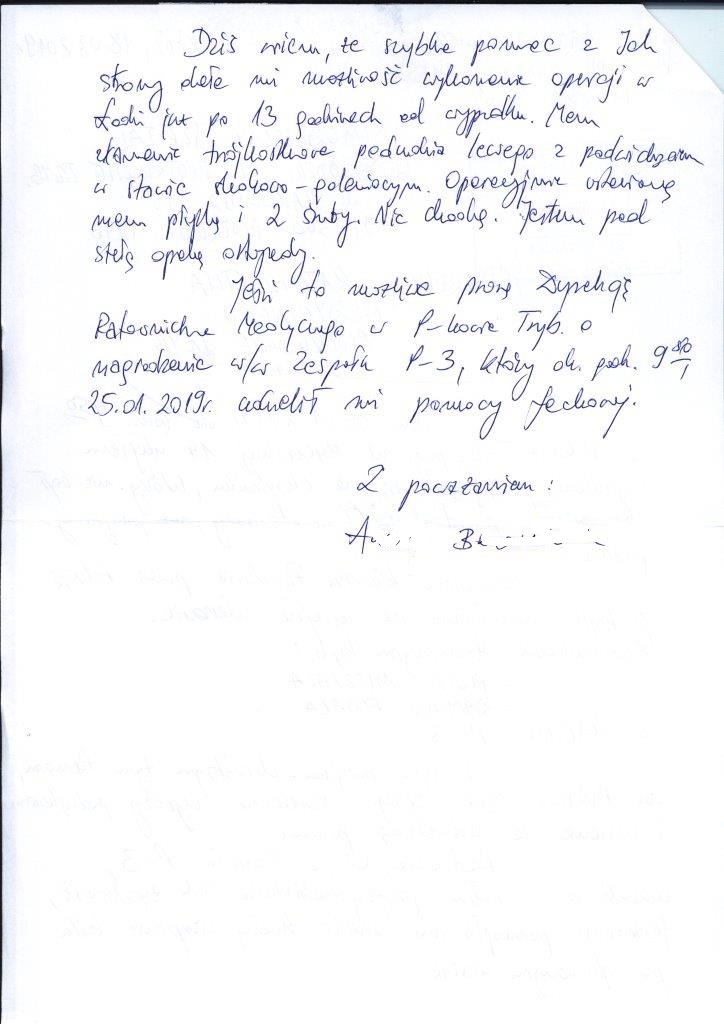 Dziś wiem, że szybka pomoc z Ich
strony dała mi możliwość wykonania operacji w
Łodzi już po 13 godzinach od wypadku. Mam
złamanie trójkostkowe podudzia lewego z podwichnięciem
w stawie skokowo-goleniowym. Operacyjnie wstawioną
mam płytkę i 2 śruby. Nie chodzę. Jestem pod
stałą opieką ortopedy.
Jeśli to możliwe proszę Dyrekcję
Ratownictwa Medycznego w P-kowie Tryb. o
nagrodzenie w/w Zespołu P-3, który ok. godz. 9
25.01.2019r. udzielił mi pomocy fachowej.
Z poważaniem: